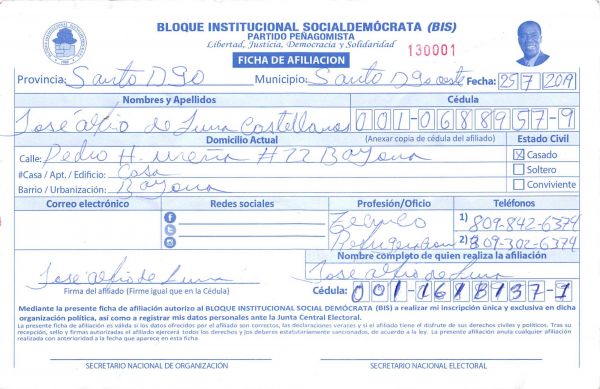 BLOQUE INSTITUCIONAL SOCIALDEMÓCRATA (BIS)
PARTIDO PEÑAGOMISTA
Libertad, Justicia, Democracia y Solidaridad
130001
FICHA DE AFILIACION
Provincia: Santo Dgo Municipio: Santo Dgo oeste Fecha: 25/7/2019
Nombres y Apellidos Cédula
José alfio de Luna Castellanos 001-0688957-9
Domicilio Actual (Anexar copia de cédula del afiliado) Estado Civil
Calle: Pedro H. ureña #22 Bayona Casado
#Casa / Apt. / Edificio: Casa Soltero
Barrio / Urbanización: Bayona Conviviente
Correo electrónico Redes sociales Profesión/Oficio Teléfonos
Tecnico 1) 809-842-6374
Refrigeracion 2) 809-302-6374
Nombre completo de quien realiza la afiliación
José alfio de Luna José alfio de Luna
Firma del afiliado (Firme igual que en la Cédula) Cédula: 001-1618137-1
Mediante la presente ficha de afiliación autorizo al BLOQUE INSTITUCIONAL SOCIAL DEMÓCRATA (BIS) a realizar mi inscripción única y exclusiva en dicha
organización política, así como a registrar mis datos personales ante la Junta Central Electoral.
La presente ficha de afiliación es válida si los datos ofrecidos por el afiliado son correctos, las declaraciones veraces y si el afiliado tiene el disfrute de sus derechos civiles y políticos. Tras su
recepción, sello y firmas autorizadas el afiliado ejercerá todos los derechos y los deberes estatutariamente sancionados, de acuerdo a la ley. La presente afiliación anula cualquier afiliación
realizada con anterioridad a la fecha que aparece en esta ficha.
SECRETARIO NACIONAL DE ORGANIZACIÓN SECRETARIO NACIONAL ELECTORAL